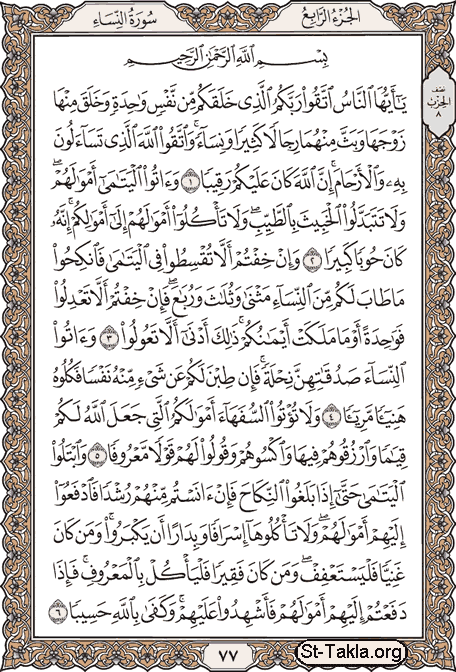 الجزء الرابع
سورة النساء
نصف
الحزب
٨
بِسْمِ ٱللَّهِ ٱلرَّحْمَٰنِ ٱلرَّحِيمِ
يَٰٓأَيُّهَا ٱلنَّاسُ ٱتَّقُوا۟ رَبَّكُمُ ٱلَّذِى خَلَقَكُم مِّن نَّفْسٍ وَٰحِدَةٍ وَخَلَقَ مِنْهَا
زَوْجَهَا وَبَثَّ مِنْهُمَا رِجَالًا كَثِيرًا وَنِسَآءً ۚ وَٱتَّقُوا۟ ٱللَّهَ ٱلَّذِى تَسَآءَلُونَ
بِهِۦ وَٱلْأَرْحَامَ ۚ إِنَّ ٱللَّهَ كَانَ عَلَيْكُمْ رَقِيبًا ١ وَءَاتُوا۟ ٱلْيَتَٰمَىٰٓ أَمْوَٰلَهُمْ ۖ
وَلَا تَتَبَدَّلُوا۟ ٱلْخَبِيثَ بِٱلطَّيِّبِ ۖ وَلَا تَأْكُلُوٓا۟ أَمْوَٰلَهُمْ إِلَىٰٓ أَمْوَٰلِكُمْ ۚ إِنَّهُۥ
كَانَ حُوبًا كَبِيرًا ٢ وَإِنْ خِفْتُمْ أَلَّا تُقْسِطُوا۟ فِى ٱلْيَتَٰمَىٰ فَٱنكِحُوا۟
مَا طَابَ لَكُم مِّنَ ٱلنِّسَآءِ مَثْنَىٰ وَثُلَٰثَ وَرُبَٰعَ ۖ فَإِنْ خِفْتُمْ أَلَّا تَعْدِلُوا۟
فَوَٰحِدَةً أَوْ مَا مَلَكَتْ أَيْمَٰنُكُمْ ۚ ذَٰلِكَ أَدْنَىٰٓ أَلَّا تَعُولُوا۟ ٣ وَءَاتُوا۟
ٱلنِّسَآءَ صَدُقَٰتِهِنَّ نِحْلَةً ۚ فَإِن طِبْنَ لَكُمْ عَن شَىْءٍ مِّنْهُ نَفْسًا فَكُلُوهُ
هَنِيٓـًٔا مَّرِيٓـًٔا ٤ وَلَا تُؤْتُوا۟ ٱلسُّفَهَآءَ أَمْوَٰلَكُمُ ٱلَّتِى جَعَلَ ٱللَّهُ لَكُمْ
قِيَٰمًا وَٱرْزُقُوهُمْ فِيهَا وَٱكْسُوهُمْ وَقُولُوا۟ لَهُمْ قَوْلًا مَّعْرُوفًا ٥ وَٱبْتَلُوا۟
ٱلْيَتَٰمَىٰ حَتَّىٰٓ إِذَا بَلَغُوا۟ ٱلنِّكَاحَ فَإِنْ ءَانَسْتُم مِّنْهُمْ رُشْدًا فَٱدْفَعُوٓا۟
إِلَيْهِمْ أَمْوَٰلَهُمْ ۖ وَلَا تَأْكُلُوهَآ إِسْرَافًا وَبِدَارًا أَن يَكْبَرُوا۟ ۚ وَمَن كَانَ
غَنِيًّا فَلْيَسْتَعْفِفْ ۖ وَمَن كَانَ فَقِيرًا فَلْيَأْكُلْ بِٱلْمَعْرُوفِ ۚ فَإِذَا
دَفَعْتُمْ إِلَيْهِمْ أَمْوَٰلَهُمْ فَأَشْهِدُوا۟ عَلَيْهِمْ ۚ وَكَفَىٰ بِٱللَّهِ حَسِيبًا ٦
٧٧
St-Takla.org